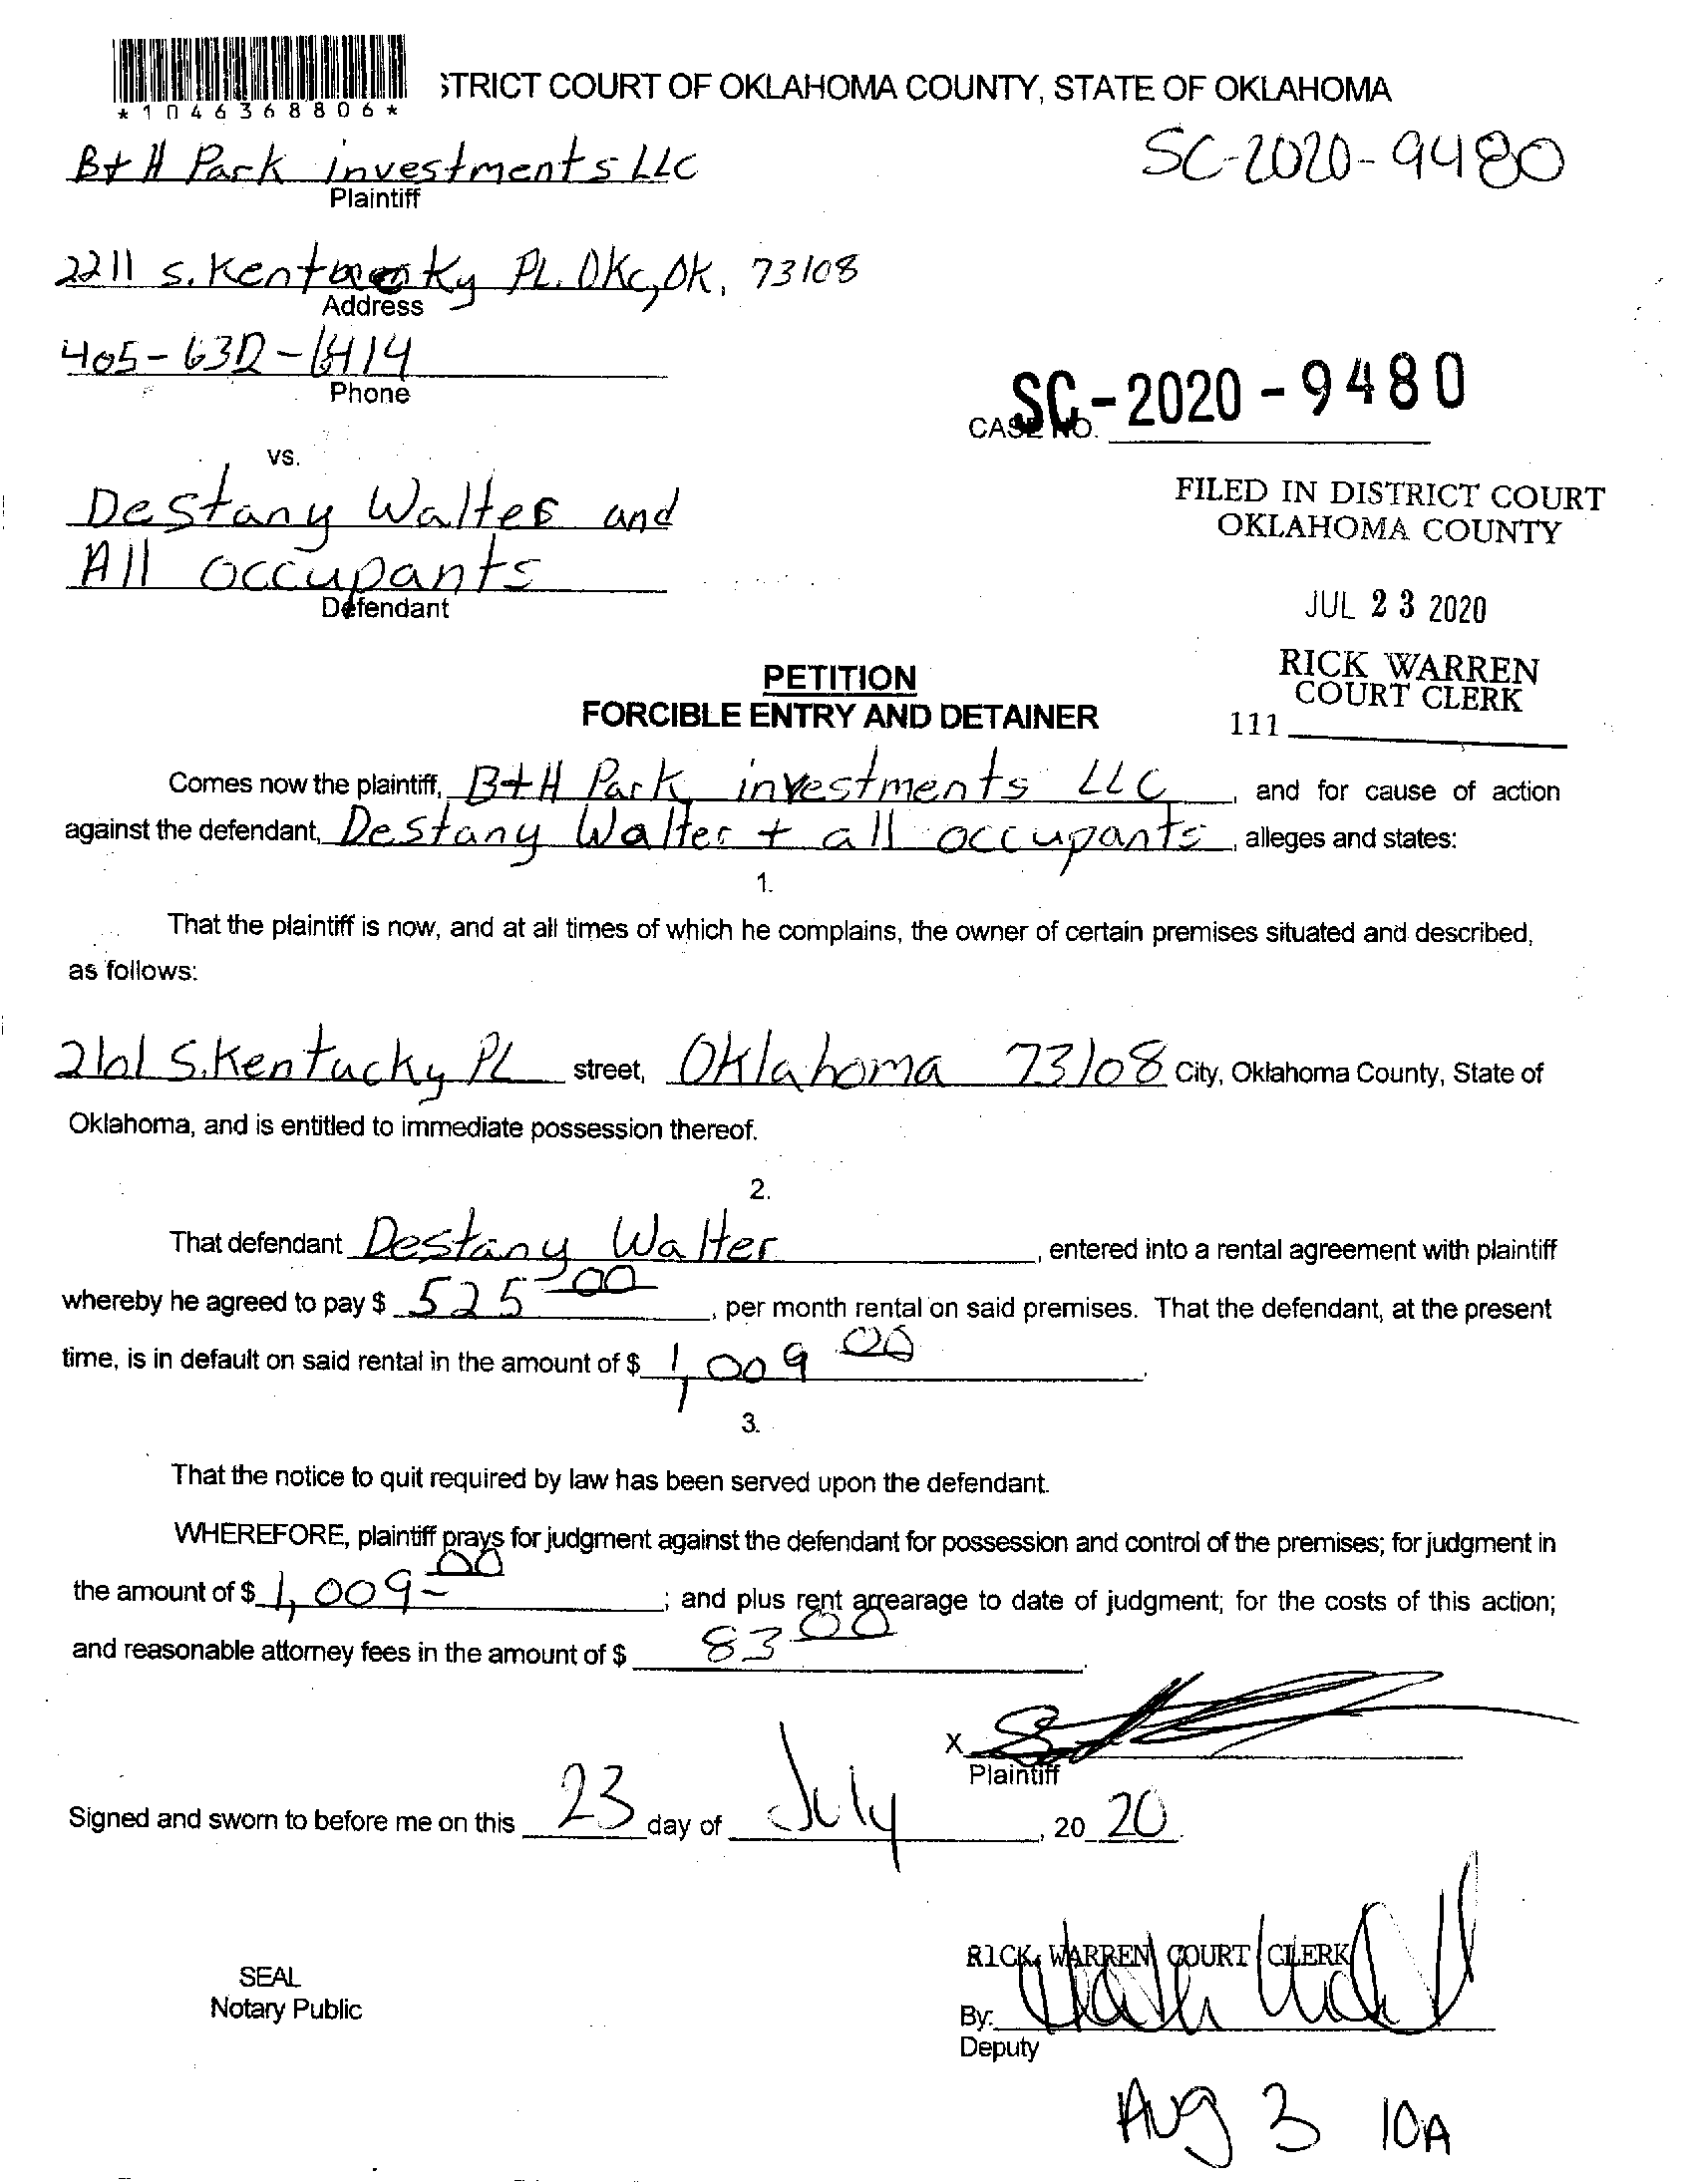 *1046368806*
STRICT COURT OF OKLAHOMA COUNTY, STATE OF OKLAHOMA
B+H Park investments LLC
SC-2020-9480
Plaintiff
2211 S. Kentucky PL. OKC, OK, 73108
Address
405-632-6414
Phone
CASE NO. SC-2020-9480
vs.
Destany Walter and
All occupants
Defendant
FILED IN DISTRICT COURT
OKLAHOMA COUNTY
JUL 23 2020
RICK WARREN
COURT CLERK
111
PETITION
FORCIBLE ENTRY AND DETAINER
Comes now the plaintiff, B+H Park investments LLC, and for cause of action
against the defendant, Destany Walter + all occupants, alleges and states:
1.
That the plaintiff is now, and at all times of which he complains, the owner of certain premises situated and described,
as follows:
S. Kentucky PL street, Oklahoma 73108 City, Oklahoma County, State of
Oklahoma, and is entitled to immediate possession thereof.
2.
That defendant Destany Walter, entered into a rental agreement with plaintiff
whereby he agreed to pay $ 525 00, per month rental on said premises. That the defendant, at the present
time, is in default on said rental in the amount of $ 1,009 00.
3.
That the notice to quit required by law has been served upon the defendant.
WHEREFORE, plaintiff prays for judgment against the defendant for possession and control of the premises; for judgment in
the amount of $ 1,009-00; and plus rent arrearage to date of judgment; for the costs of this action;
and reasonable attorney fees in the amount of $ 83 00.
X
Plaintiff
Signed and sworn to before me on this 23 day of July, 20 20.
RICK WARREN COURT CLERK
SEAL
Notary Public
By:
Deputy
Aug 3 10A